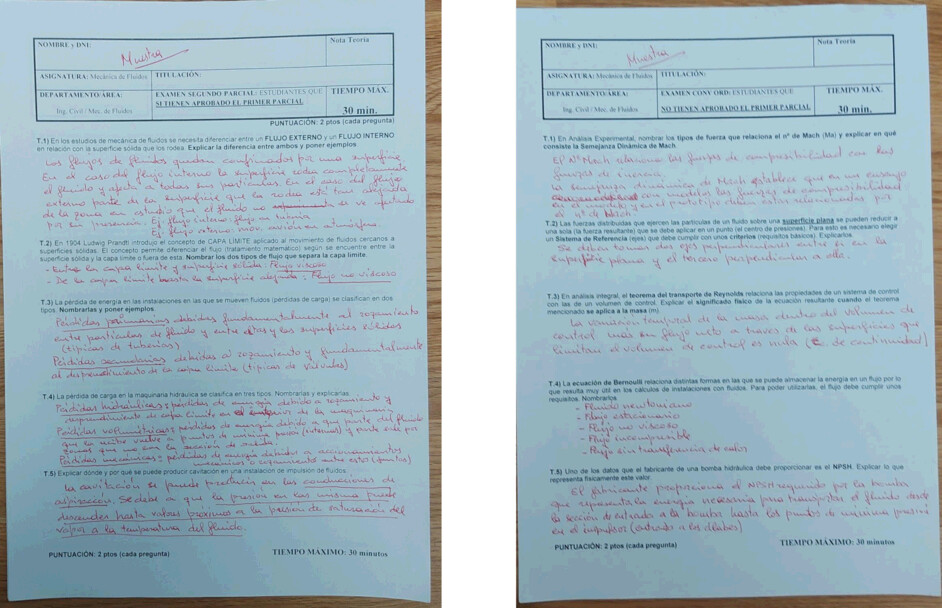 NOMBRE y DNI:
Muestra
Nota Teoría
ASIGNATURA: Mecánica de Fluidos
TITULACIÓN:
DEPARTAMENTO/ÁREA:
Ing. Civil / Mec. de Fluidos
EXAMEN SEGUNDO PARCIAL: ESTUDIANTES QUE
SI TIENEN APROBADO EL PRIMER PARCIAL
TIEMPO MÁX.
30 min.
PUNTUACIÓN: 2 ptos (cada pregunta)
T.1) En los estudios de mecánica de fluidos se necesita diferenciar entre un FLUJO EXTERNO y un FLUJO INTERNO
en relación con la superficie sólida que los rodea. Explicar la diferencia entre ambos y poner ejemplos
Los flujos de fluidos quedan confinados por una superficie.
En el caso del flujo interno la superficie rodea completamente
el fluido y afecta a todas sus partículas. En el caso del flujo
externo parte de la superficie que la rodea está tan alejada
de la zona en estudio que el fluido no se ve afectado
por su presencia. Ej. flujo interno: flujo en tubería
Ej. flujo externo: mov. avión en atmósfera
T.2) En 1904 Ludwig Prandtl introdujo el concepto de CAPA LÍMITE aplicado al movimiento de fluidos cercanos a
superficies sólidas. El concepto permite diferenciar el flujo (tratamiento matemático) según se encuentre entre la
superficie sólida y la capa límite o fuera de esta. Nombrar los dos tipos de flujo que separa la capa límite.
- Entre la capa límite y superficie sólida: Flujo viscoso
- De la capa límite hasta la superficie alejada: Flujo no viscoso
T.3) La pérdida de energía en las instalaciones en las que se mueven fluidos (pérdidas de carga) se clasifican en dos
tipos. Nombrarlas y poner ejemplos.
Pérdidas primarias debidas fundamentalmente al rozamiento
entre partículas de fluido y entre estas y las superficies sólidas
(típicas de tuberías)
Pérdidas secundarias debidas al rozamiento y fundamentalmente
al desprendimiento de la capa límite (típicas de válvulas)
T.4) La pérdida de carga en la maquinaria hidráulica se clasifica en tres tipos. Nombrarlas y explicarlas.
Pérdidas hidráulicas: pérdidas de energía debido a rozamiento y
desprendimiento de capa límite en el interior de la maquinaria
Pérdidas volumétricas: pérdidas de energía debido a que parte del fluido
que la recibe vuelve a puntos de mínima presión (internas) y parte sale por
zonas que no son la sección de salida.
Pérdidas mecánicas: pérdidas de energía debidas a accionamientos
mecánicos o rozamiento entre estos (juntas)
T.5) Explicar dónde y por qué se puede producir cavitación en una instalación de impulsión de fluidos.
La cavitación se puede producir en las conducciones de
aspiración. Se debe a que la presión en las mismas puede
descender hasta valores próximos a la presión de saturación del
vapor a la temperatura del fluido.
PUNTUACIÓN: 2 ptos (cada pregunta)
TIEMPO MÁXIMO: 30 minutos
NOMBRE y DNI:
Muestra
Nota Teoría
ASIGNATURA: Mecánica de Fluidos
TITULACIÓN:
DEPARTAMENTO/ÁREA:
Ing. Civil / Mec. de Fluidos
EXAMEN CONV ORD: ESTUDIANTES QUE
NO TIENEN APROBADO EL PRIMER PARCIAL
TIEMPO MÁX.
30 min.
T.1) En Análisis Experimental, nombrar los tipos de fuerza que relaciona el nº de Mach (Ma) y explicar en qué
consiste la Semejanza Dinámica de Mach.
El Nº Mach relaciona las fuerzas de compresibilidad con las
fuerzas de inercia.
La semejanza dinámica de Mach establece que en un ensayo
con modelos las fuerzas de compresibilidad
en el modelo y en el prototipo deben estar relacionadas por
el nº de Mach.
T.2) Las fuerzas distribuidas que ejercen las partículas de un fluido sobre una superficie plana se pueden reducir a
una sola (la fuerza resultante) que se debe aplicar en un punto (el centro de presiones). Para esto es necesario elegir
un Sistema de Referencia (ejes) que debe cumplir con unos criterios (requisitos básicos). Explicarlos.
Se deben tomar dos ejes perpendiculares entre sí en la
superficie plana y el tercero perpendicular a ella.
T.3) En análisis integral, el teorema del transporte de Reynolds relaciona las propiedades de un sistema de control
con las de un volumen de control. Explicar el significado físico de la ecuación resultante cuando el teorema
mencionado se aplica a la masa (m).
La variación temporal de la masa dentro del volumen de
control más su flujo neto a través de las superficies que
limitan el volumen de control es nula (E. de continuidad)
T.4) La ecuación de Bernoulli relaciona distintas formas en las que se puede almacenar la energía en un flujo por lo
que resulta muy útil en los cálculos de instalaciones con fluidos. Para poder utilizarlas, el flujo debe cumplir unos
requisitos. Nombrarlos.
- Fluido newtoniano
- Flujo estacionario
- Flujo no viscoso
- Flujo incompresible
- Flujo sin transferencia de calor
T.5) Uno de los datos que el fabricante de una bomba hidráulica debe proporcionar es el NPSH. Explicar lo que
representa físicamente este valor.
El fabricante proporciona el NPSH requerido por la bomba
que representa la energía necesaria para transportar el fluido desde
la sección de entrada a la bomba hasta los puntos de mínima presión
en el impulsor (entrada a los álabes)
PUNTUACIÓN: 2 ptos (cada pregunta)
TIEMPO MÁXIMO: 30 minutos